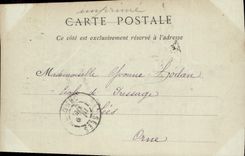 imprimé
CARTE POSTALE
Ce côté est exclusivement réservé à l'adresse
Mademoiselle Yvonne
École de Dressage
Sées
Orne